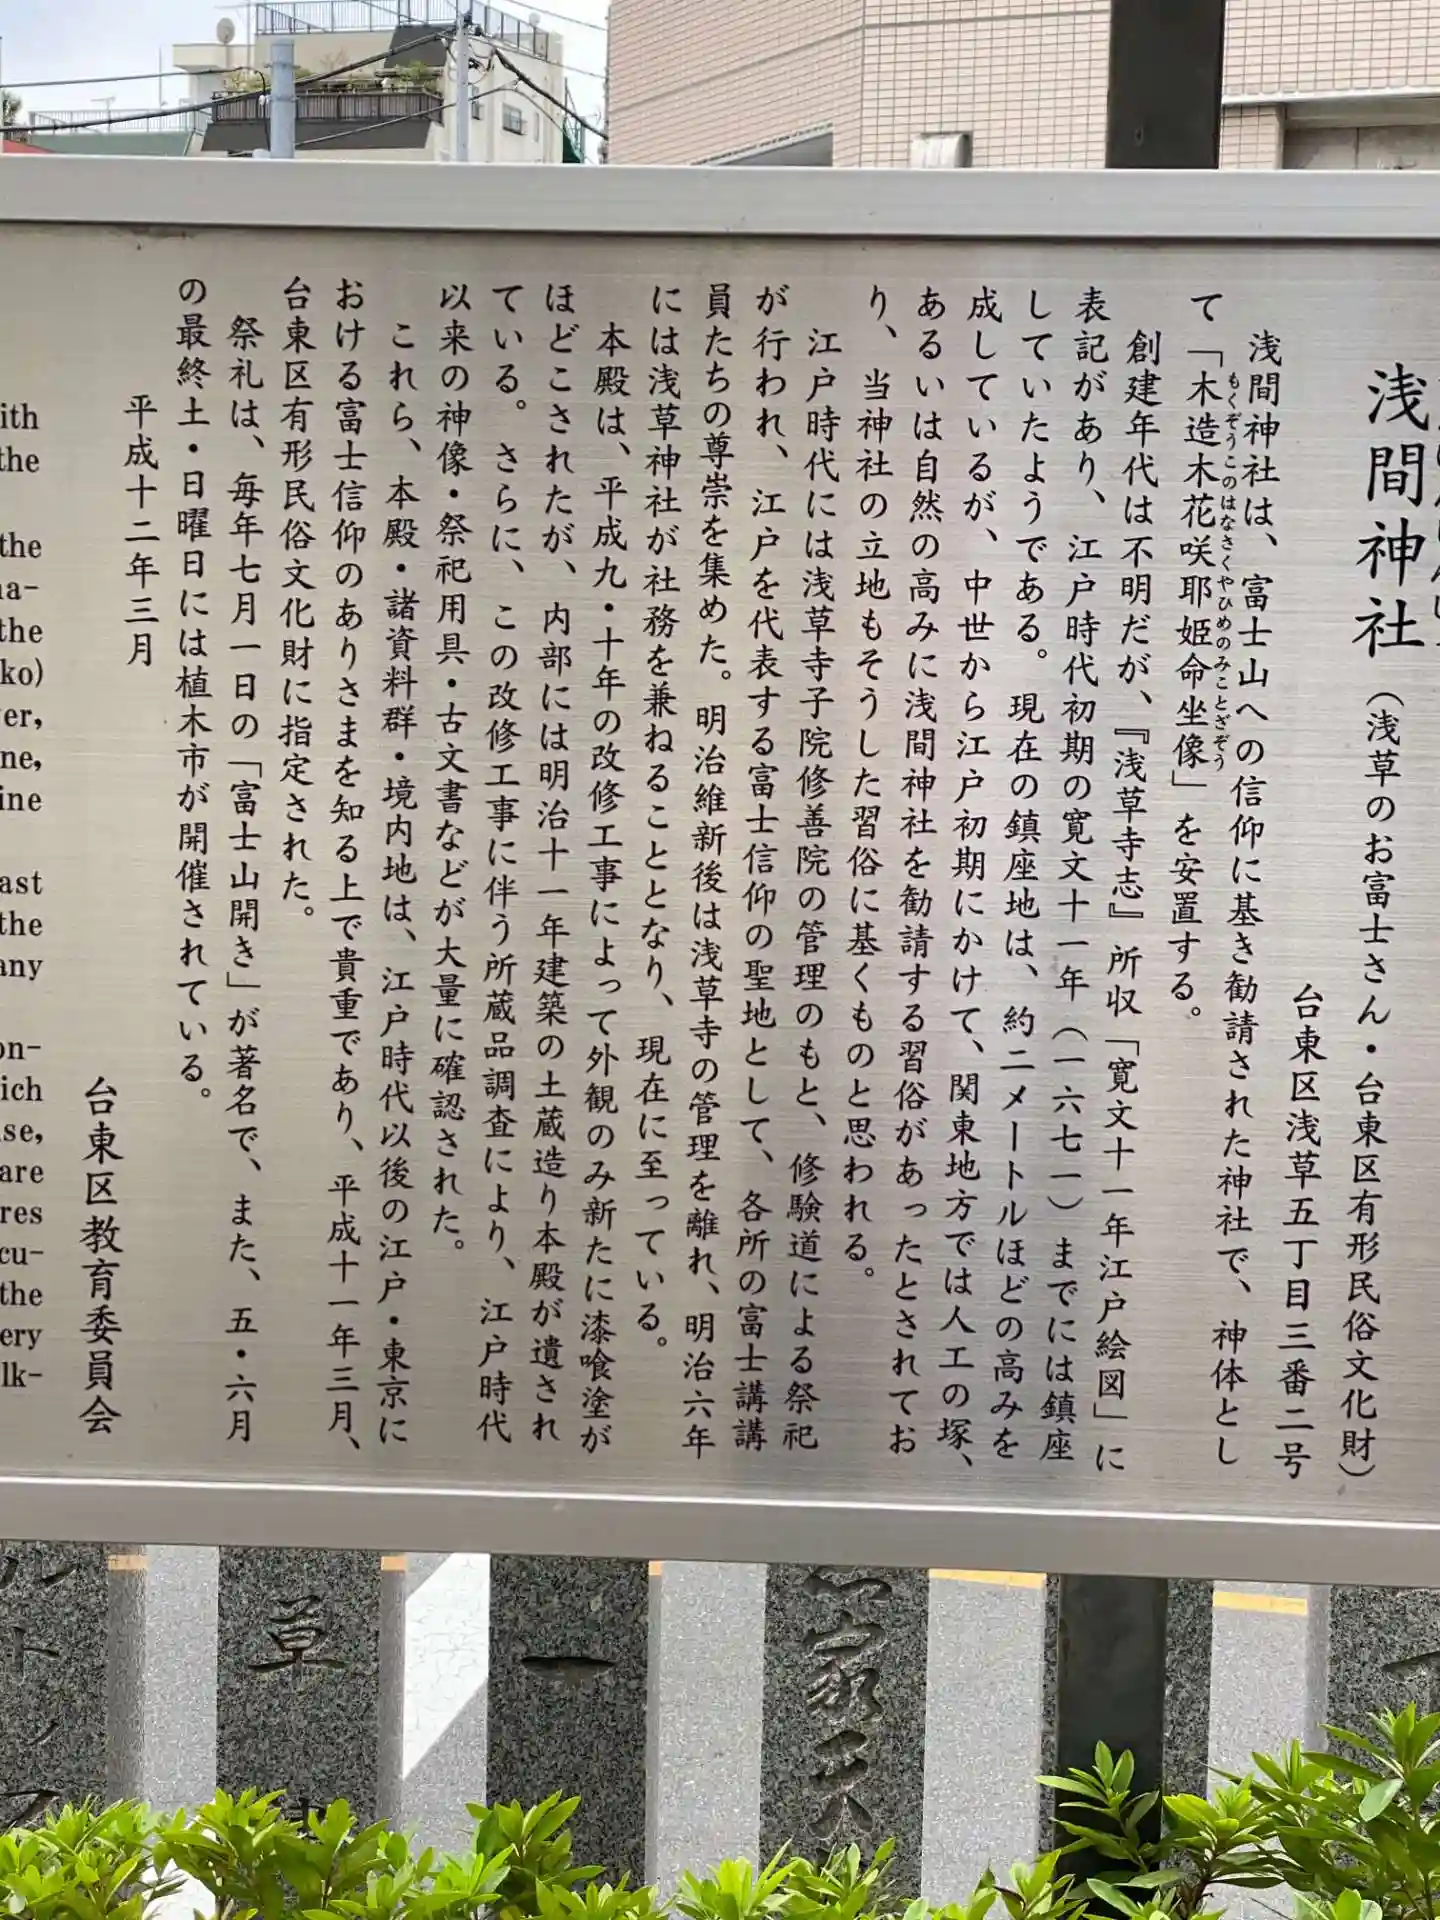 浅間神社(浅草のお富士さん・台東区有形民俗文化財)
台東区浅草五丁目三番二号
浅間神社は、富士山への信仰に基き勧請された神社で、神体とし
て「木造木花咲耶姫命坐像」を安置する。
もくぞうこのはなさくやひめのみことざぞう
創建年代は不明だが、『浅草寺志』所収「寛文十一年江戸絵図」に
表記があり、江戸時代初期の寛文十一年(一六七一)までには鎮座
していたようである。現在の鎮座地は、約二メートルほどの高みを
成しているが、中世から江戸初期にかけて、関東地方では人工の塚、
あるいは自然の高みに浅間神社を勧請する習俗があったとされてお
り、当神社の立地もそうした習俗に基くものと思われる。
江戸時代には浅草寺子院修善院の管理のもと、修験道による祭祀
が行われ、江戸を代表する富士信仰の聖地として、各所の富士講講
員たちの尊崇を集めた。明治維新後は浅草寺の管理を離れ、明治六年
には浅草神社が社務を兼ねることとなり、現在に至っている。
本殿は、平成九・十年の改修工事によって外観のみ新たに漆喰塗が
ほどこされたが、内部には明治十一年建築の土蔵造り本殿が遺され
ている。さらに、この改修工事に伴う所蔵品調査により、江戸時代
以来の神像・祭祀用具・古文書などが大量に確認された。
これら、本殿・諸資料群・境内地は、江戸時代以後の江戸・東京に
おける富士信仰のありさまを知る上で貴重であり、平成十一年三月、
台東区有形民俗文化財に指定された。
祭礼は、毎年七月一日の「富士山開き」が著名で、また、五・六月
の最終土・日曜日には植木市が開催されている。
平成十二年三月
台東区教育委員会
ith
the
the
na-
the
ko)
ver,
ne,
ine
ast
the
any
on-
ich
se,
are
res
cu-
the
ery
lk-
草
一
家